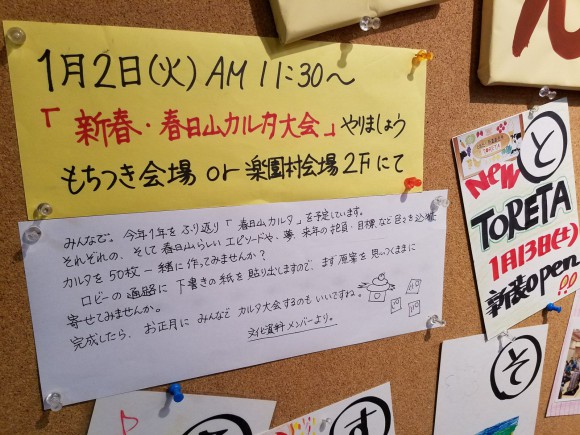 1月2日(火) AM 11:30〜
「新春・春日山カルタ大会」やりましょう
もちつき会場 or 楽園村会場 2Fにて
みんなで。今年1年をふり返り「春日山カルタ」を予定しています。
それぞれの、そして春日山らしいエピソードや、夢、来年の抱負・目標など色々を込めて
カルタを50枚 一緒に作ってみませんか?
ロビーの通路に下書きの紙を貼り出しますので、まず原案を思いつくままに
寄せてみませんか。
完成したら、お正月にみんなでカルタ大会するのもいいですね。
文化資料メンバーより。
と
New
TORETA
1月13日(土)
新装open!!
そ
す